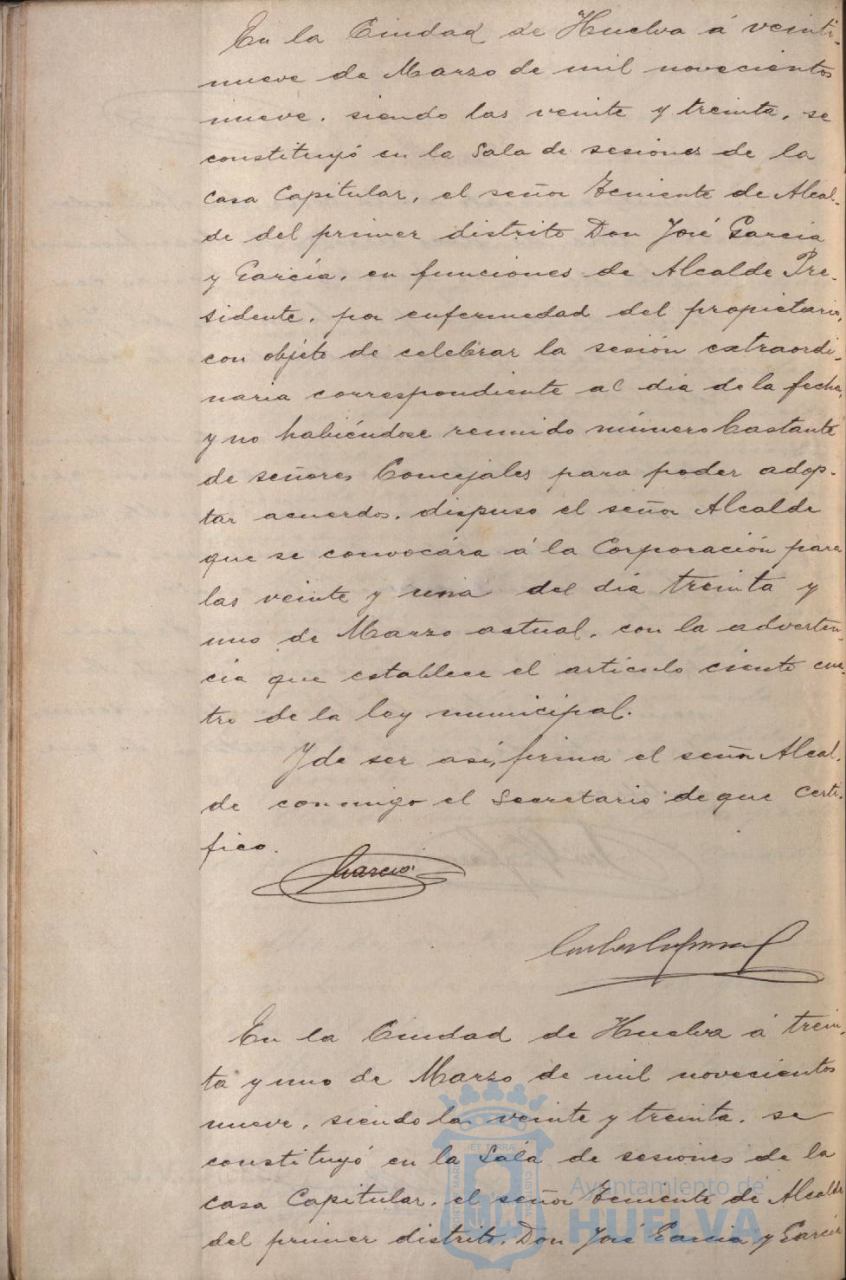 En la Ciudad de Huelva á veinti-
nueve de Marzo de mil novecientos
nueve, siendo las veinte y treinta, se
constituyó en la Sala de sesiones de la
Casa Capitular, el señor Teniente de Alcal-
de del primer distrito Don José García
y García, en funciones de Alcalde Pre-
sidente, por enfermedad del propietario,
con objeto de celebrar la sesión extraordi-
naria correspondiente al dia de la fecha,
y no habiéndose reunido número bastante
de señores Concejales para poder adop-
tar acuerdos, dispuso el señor Alcalde
que se convocára á la Corporación para
las veinte y una del dia treinta y
uno de Marzo actual, con la adverten-
cia que establece el artículo ciento cua-
tro de la ley municipal.
Y de ser asi, firma el señor Alcal-
de conmigo el Secretario de que certi-
fico.
García
En la Ciudad de Huelva á trein-
ta y uno de Marzo de mil novecientos
nueve, siendo las veinte y treinta, se
constituyó en la Sala de sesiones de la
casa Capitular, el señor Teniente de Alcalde
del primer distrito, Don José García y García
Ayuntamiento de
HUELVA